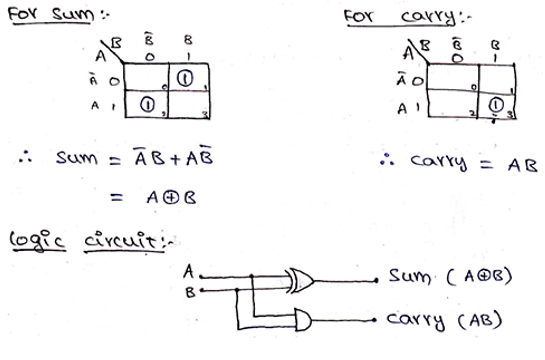 For Sum:-
A B B̅ B
0 1
A̅ 0 ① 0 1
A 1 ① 2 3
∴ Sum = A̅B + AB̅
= A⊕B
For carry:-
A B B̅ B
0 1
A̅ 0 0 1
A 1 2 ① 3
∴ carry = AB
Logic circuit:-
A Sum (A⊕B)
B
carry (AB)